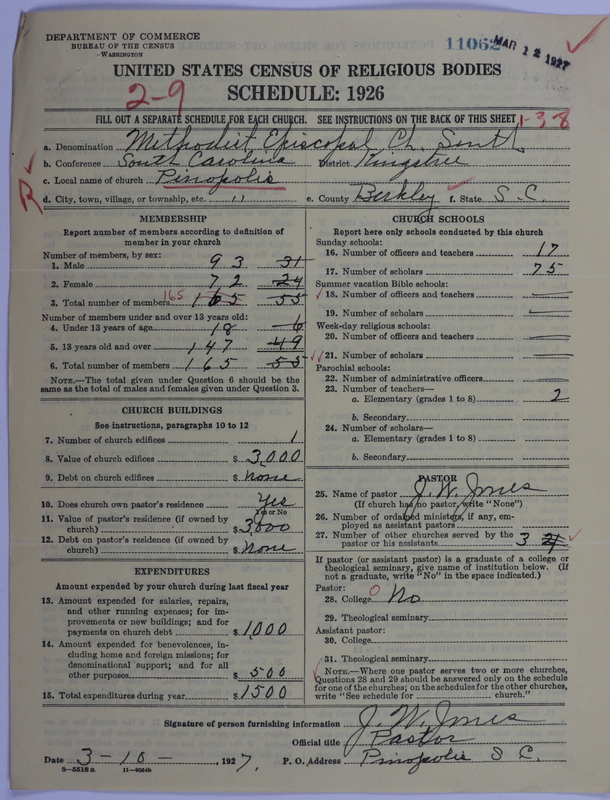 DEPARTMENT OF COMMERCE
BUREAU OF THE CENSUS
WASHINGTON
11062
MAR 12 1927
UNITED STATES CENSUS OF RELIGIOUS BODIES
SCHEDULE: 1926
2-9
FILL OUT A SEPARATE SCHEDULE FOR EACH CHURCH. SEE INSTRUCTIONS ON THE BACK OF THIS SHEET
1-38
a. Denomination Methodist Episcopal Ch. South
b. Conference South Carolina District Kingstree
c. Local name of church Pinopolis
R
d. City, town, village, or township, etc. " e. County Berkley f. State S.C.
MEMBERSHIP
Report number of members according to definition of
member in your church
Number of members, by sex:
1. Male 93 31
2. Female 72 24
3. Total number of members 165 165 55
Number of members under and over 13 years old:
4. Under 13 years of age 18 6
5. 13 years old and over 147 49
6. Total number of members 165 55
NOTE.—The total given under Question 6 should be the
same as the total of males and females given under Question 3.
CHURCH BUILDINGS
See instructions, paragraphs 10 to 12
7. Number of church edifices 1
8. Value of church edifices $ 3,000
9. Debt on church edifices $ None
10. Does church own pastor's residence Yes
Yes or No
11. Value of pastor's residence (if owned by
church) $ 3,000
12. Debt on pastor's residence (if owned by
church) $ None
EXPENDITURES
Amount expended by your church during last fiscal year
13. Amount expended for salaries, repairs,
and other running expenses; for im-
provements or new buildings; and for
payments on church debt $ 1,000
14. Amount expended for benevolences, in-
cluding home and foreign missions; for
denominational support; and for all
other purposes $ 500
15. Total expenditures during year $ 1500
CHURCH SCHOOLS
Report here only schools conducted by this church
Sunday schools:
16. Number of officers and teachers 17
17. Number of scholars 75
Summer vacation Bible schools:
18. Number of officers and teachers
19. Number of scholars
Week-day religious schools:
20. Number of officers and teachers
21. Number of scholars
Parochial schools:
22. Number of administrative officers
23. Number of teachers—
a. Elementary (grades 1 to 8) 2
b. Secondary
24. Number of scholars—
a. Elementary (grades 1 to 8)
b. Secondary
PASTOR
25. Name of pastor J. W. Jones
(If church has no pastor, write "None")
26. Number of ordained ministers, if any, em-
ployed as assistant pastors
27. Number of other churches served by the
pastor or his assistants 3
If pastor (or assistant pastor) is a graduate of a college or
theological seminary, give name of institution below. (If
not a graduate, write "No" in the space indicated.)
Pastor:
28. College 0 No
29. Theological seminary
Assistant pastor:
30. College
31. Theological seminary
NOTE.—Where one pastor serves two or more churches,
Questions 28 and 29 should be answered only on the schedule
for one of the churches; on the schedules for the other churches,
write "See schedule for church."
Signature of person furnishing information J. W. Jones
Official title Pastor
Date 3-10-, 1927. P. O. Address Pinopolis S C.
8—5518a 11—9054b